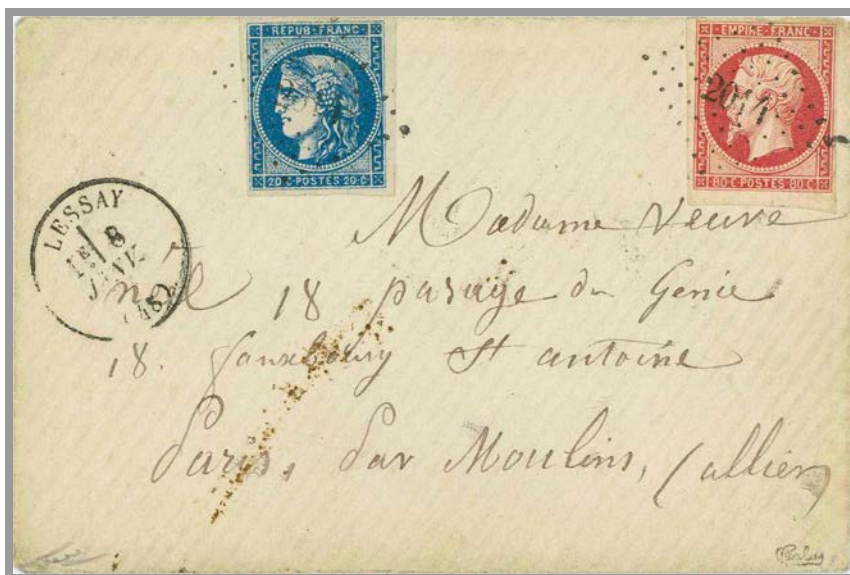 REPUB·FRANC·
20·C·POSTES·20·C·
EMPIRE·FRANC·
80·C·POSTES·80·C·
2014
LESSAY
8
JANV.
(48)
Madame Veuve
noël 18 pasage du Genie
18. fauxbourg St antoine
Paris, Par Moulins, (allier)